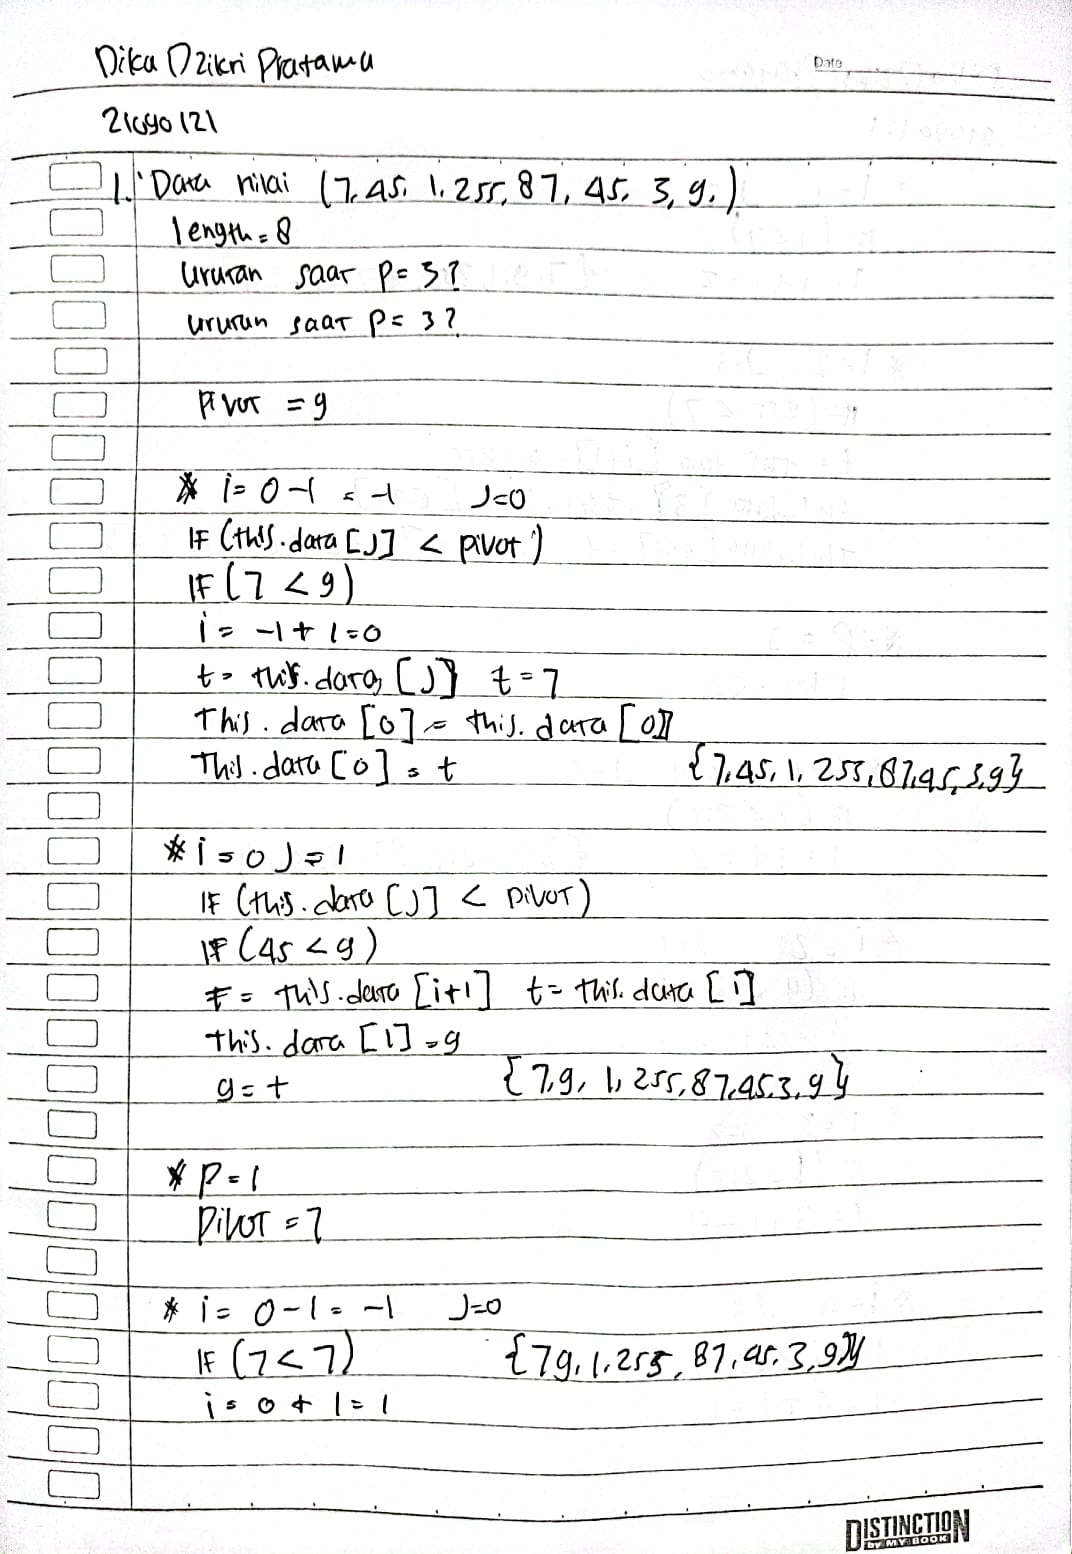 Dika Dzikri Pratama
Date
21090121
1. Data nilai (7, 45, 1, 255, 87, 45, 3, 9.)
length = 8
Urutan saat P = 3?
urutan saat P = 3?
Pivot = 9
* i = 0-1 = -1 J=0
IF (this.data [J] < pivot)
IF (7 < 9)
i = -1 + 1 = 0
t = this.data [J] t = 7
This.data [0] = this.data [0]
This.data [0] = t {7,45,1,255,87,45,3,9}
* i = 0 J = 1
IF (this.data [J] < pivot)
IF (45 < 9)
t = this.data [i+1] t = this.data [1]
this.data [1] = 9
9 = t {7,9,1,255,87,45,3,9}
* P = 1
Pivot = 7
* i = 0-1 = -1 J=0
IF (7 < 7) {7,9,1,255,87,45,3,9}
i = 0 + 1 = 1
DISTINCTION
BY MY BOOK